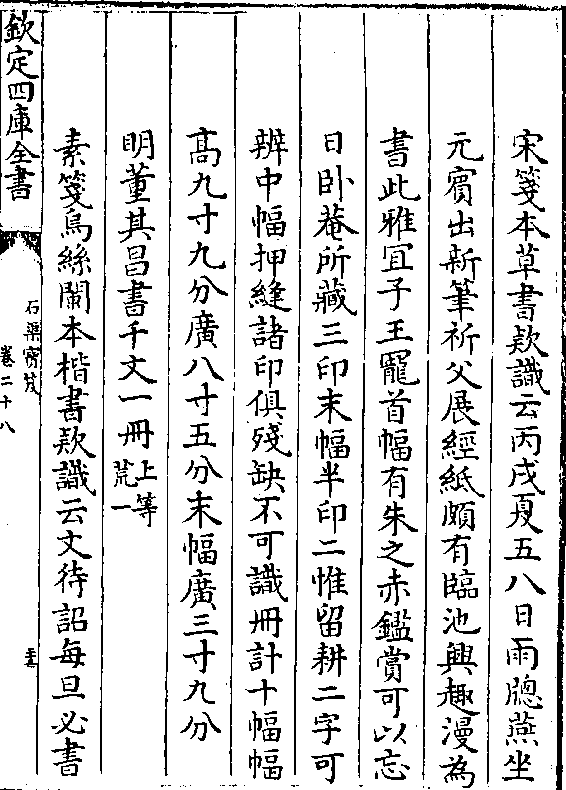 宋箋本草書款識云丙戌夏五八日雨牕燕坐
元賔出新筆祈父展經紙頗有臨池興趣漫為
書此雅宜子王寵首幅有朱之赤鑑賞可以忘
日卧菴所藏三印末幅半印二惟留耕二字可
辨中幅押縫諸印俱殘缺不可識冊計十幅幅
高九寸九分廣八寸五分末幅廣三寸九分
明董其昌書千文一冊上等荒一
素箋烏絲闌本楷書款識云文待詔每旦必書
欽定四庫全書
石渠寳笈
卷二十八